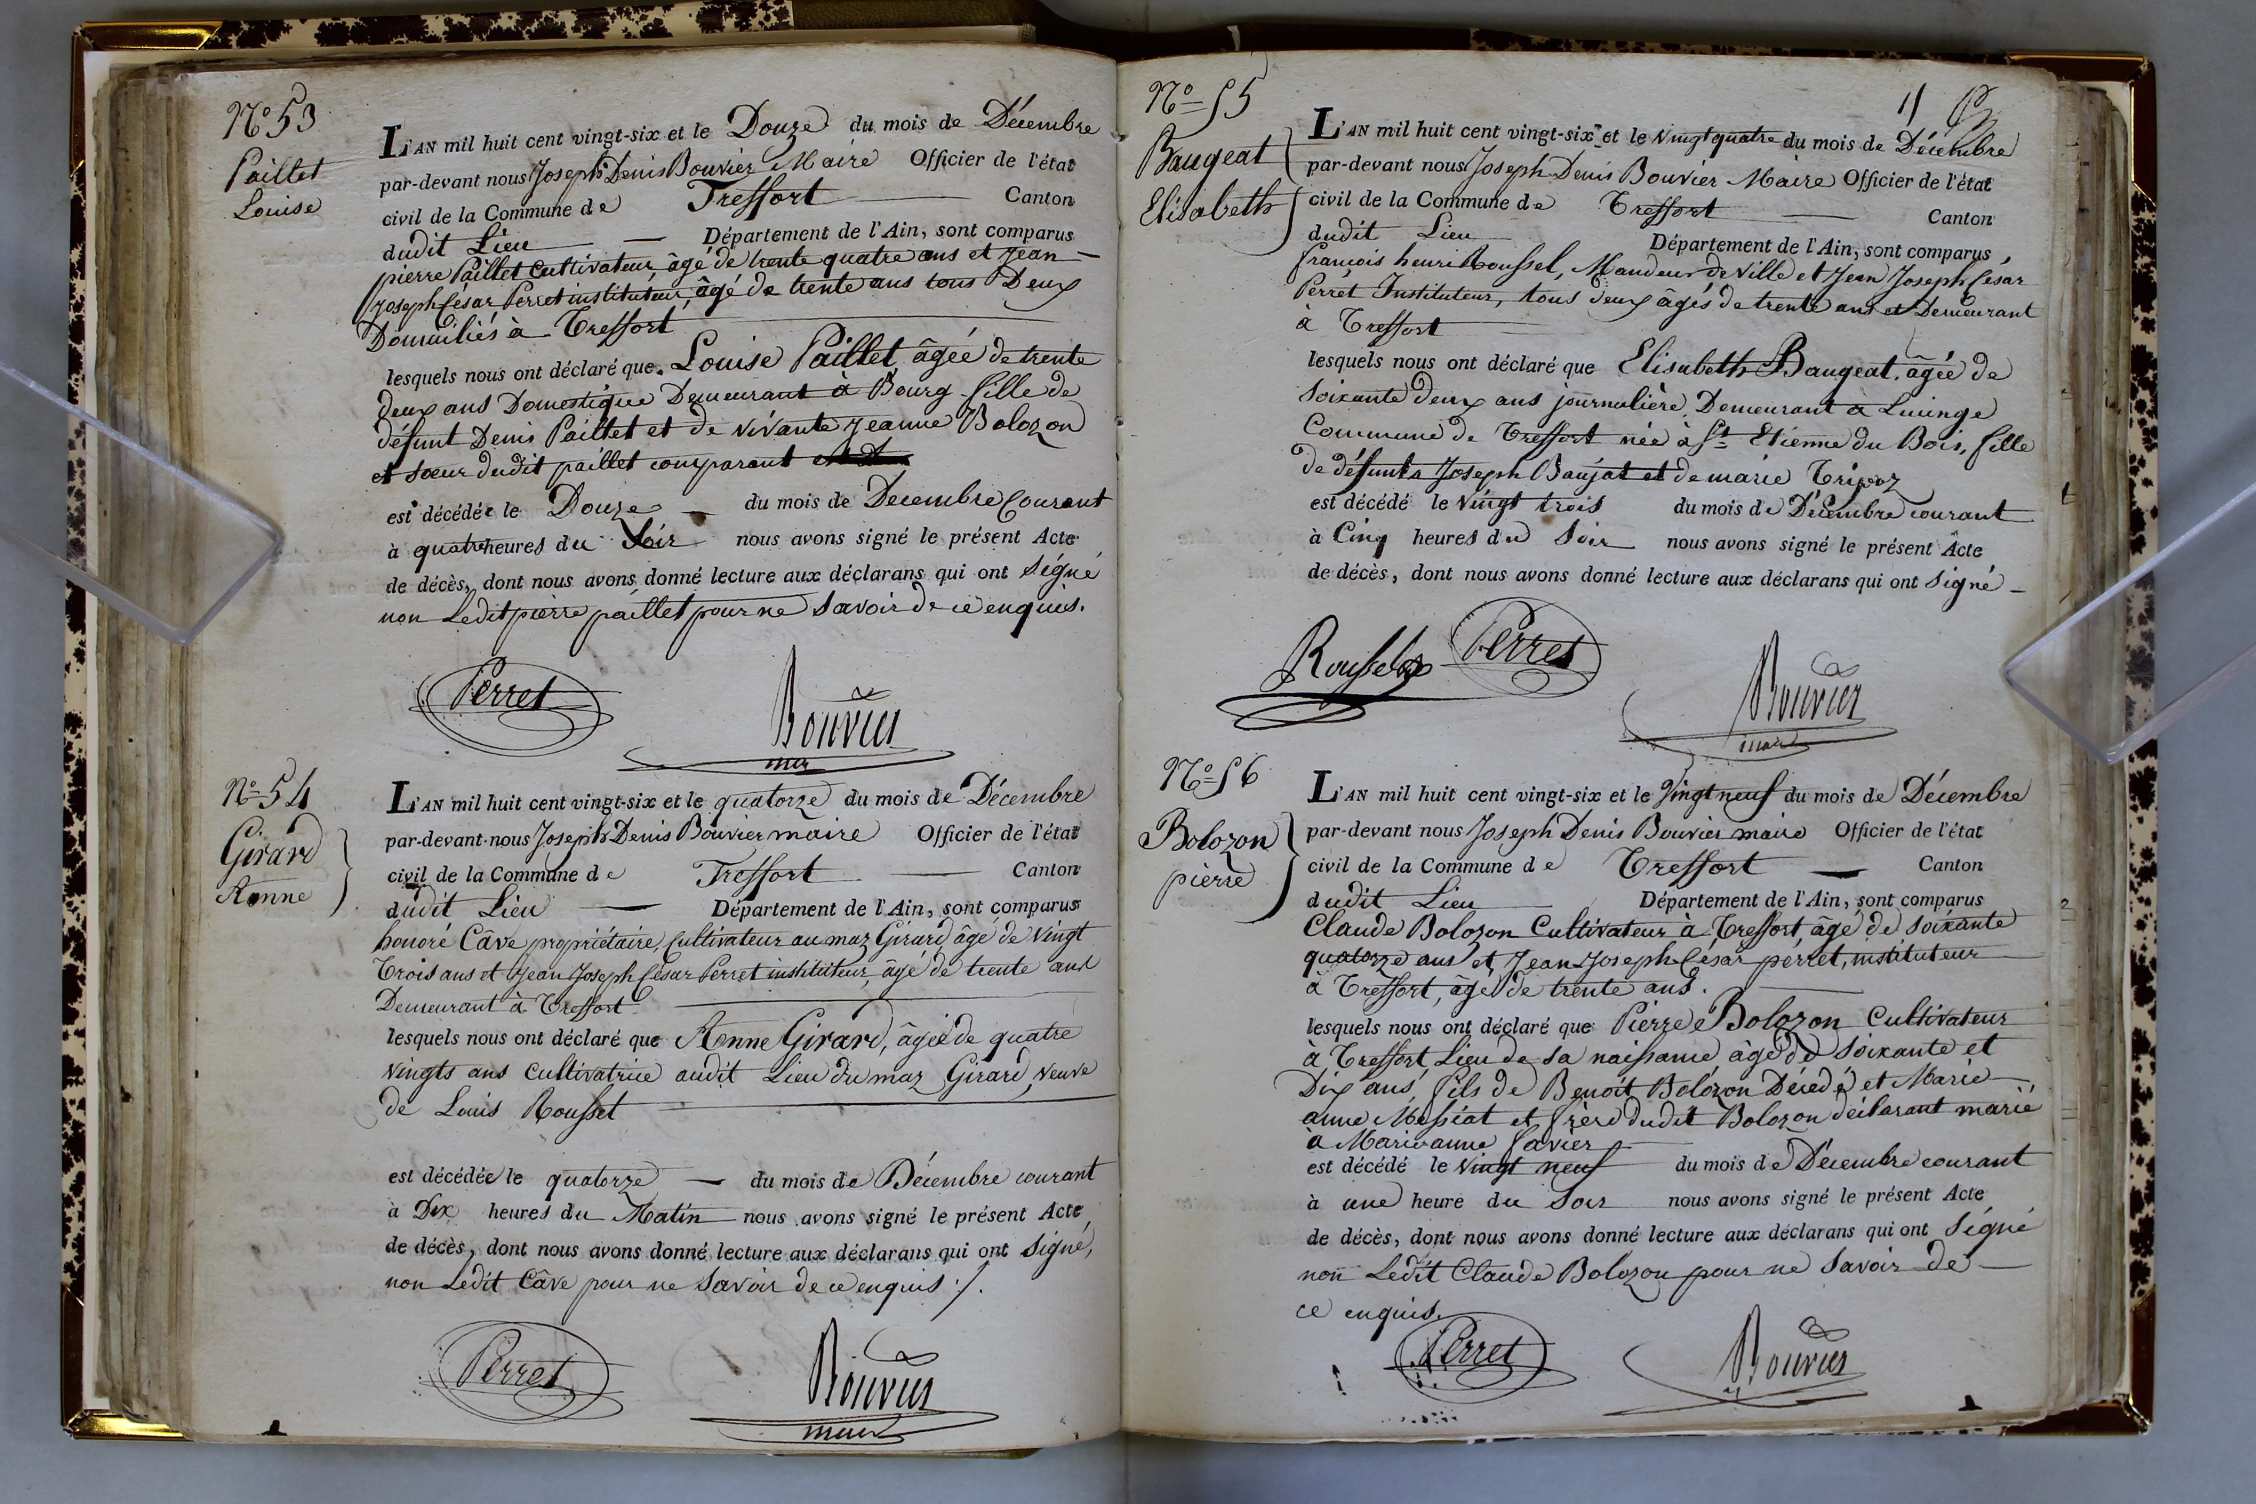 N° 53
Paillet
Louise
L'AN mil huit cent vingt-six et le Douze du mois de Décembre
par-devant nous Joseph Denis Bouvier Maire Officier de l'état
civil de la Commune de Treffort Canton
dudit Lieu Département de l'Ain, sont comparus
pierre Paillet cultivateur, âgé de trente quatre ans et Jean
Joseph César Perret instituteur, âgé de trente ans tous Deux
Domiciliés à Treffort
lesquels nous ont déclaré que Louise Paillet âgée de trente
deux ans Domestique Demeurant à Bourg fille de
défunt Denis Paillet et de vivante Jeanne Bolozon
et sœur dudit paillet comparant
est décédée le Douze du mois de Decembre Courant
à quatre heures du Soir nous avons signé le présent Acte
de décès, dont nous avons donné lecture aux déclarans qui ont signé
non Ledit pierre paillet pour ne savoir de ce enquis.
Perret
Bouvier
N° 54
Girard
Anne
L'AN mil huit cent vingt-six et le quatorze du mois de Décembre
par-devant-nous Joseph Denis Bouvier maire Officier de l'état
civil de la Commune de Treffort Canton
dudit Lieu Département de l'Ain, sont comparus
honoré Câve propriétaire, Cultivateur au maz Girard âgé de vingt
Trois ans et Jean Joseph César Perret instituteur, âgé de trente ans
Demeurant à Treffort
lesquels nous ont déclaré que Anne Girard, âgée de quatre
vingts ans cultivatrice audit Lieu du maz Girard, veuve
de Louis Rousset
est décédée le quatorze du mois de Décembre courant
à Dix heures du Matin nous avons signé le présent Acte
de décès, dont nous avons donné lecture aux déclarans qui ont signé,
non Ledit Câve pour ne savoir de ce enquis ./.
Perret
Bouvier
maire
11
N° 55
Baugeat
Elisabeth
L'AN mil huit cent vingt-six et le vingt quatre du mois de Décembre
par-devant nous Joseph Denis Bouvier Maire Officier de l'état
civil de la Commune de Treffort Canton
dudit Lieu Département de l'Ain, sont comparus
françois henri Roussel, Mandeur de Ville et Jean Joseph César
Perret Instituteur, tous deux âgés de trente ans et Demeurant
à Treffort
lesquels nous ont déclaré que Elisabeth Baugeat, âgée de
soixante deux ans journalière, Demeurant à Lucinge
Commune de Treffort née à St Etienne du Bois, fille
de défunts Joseph Baujat et de marie Trivoz
est décédé le vingt trois du mois de Décembre courant
à Cinq heures du Soir nous avons signé le présent Acte
de décès, dont nous avons donné lecture aux déclarans qui ont signé
Perret
Bouvier
maire
N° 56
Bolozon
pierre
L'AN mil huit cent vingt-six et le Vingt neuf du mois de Décembre
par-devant nous Joseph Denis Bouvier maire Officier de l'état
civil de la Commune de Treffort Canton
dudit Lieu Département de l'Ain, sont comparus
Claude Bolozon Cultivateur à Treffort, âgé de soixante
quatorze ans et Jean Joseph César perret, instituteur
à Treffort, âgé de trente ans.
lesquels nous ont déclaré que Pierre Bolozon Cultivateur
à Treffort Lieu de sa naissance âgé de soixante et
Dix ans, fils de Benoit Bolozon Décédé et Marie
anne Messiat et frère dudit Bolozon déclarant marié
à Marie anne favier
est décédé le vingt neuf du mois de Décembre courant
à une heure du Soir nous avons signé le présent Acte
de décès, dont nous avons donné lecture aux déclarans qui ont signé
non Ledit Claude Bolozon pour ne savoir de
ce enquis.
Perret
Bouvier